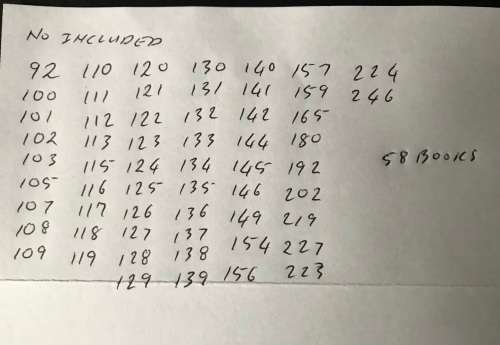 NO INCLUDED
92 110 120 130 140 157 224
100 111 121 131 141 159 246
101 112 122 132 142 165
102 113 123 133 144 180
103 115 124 134 145 192 58 BOOKS
105 116 125 135 146 202
107 117 126 136 149 219
108 118 127 137 154 227
109 119 128 138 156 223
129 139